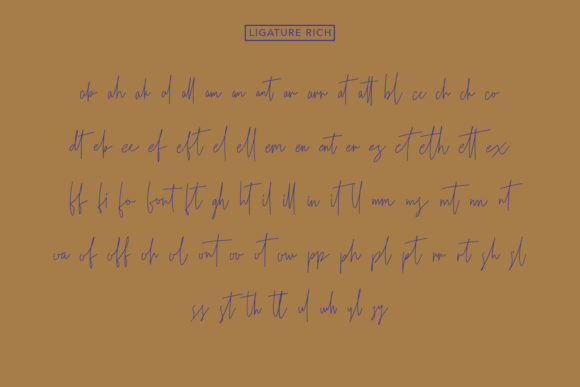 LIGATURE RICH
ab ah ak al all am an ant ar arr at att bl ce ch ck co
dt eb ee ef eft el ell em en ent er es et eth ett ex
ff fi fo font ft gh ht il ill in it tl mm my nt nn nt
oa of off oh ol ont oo ot ow pp ph pl pt rr rt sh sl
ss st th tt ul wh yl sy